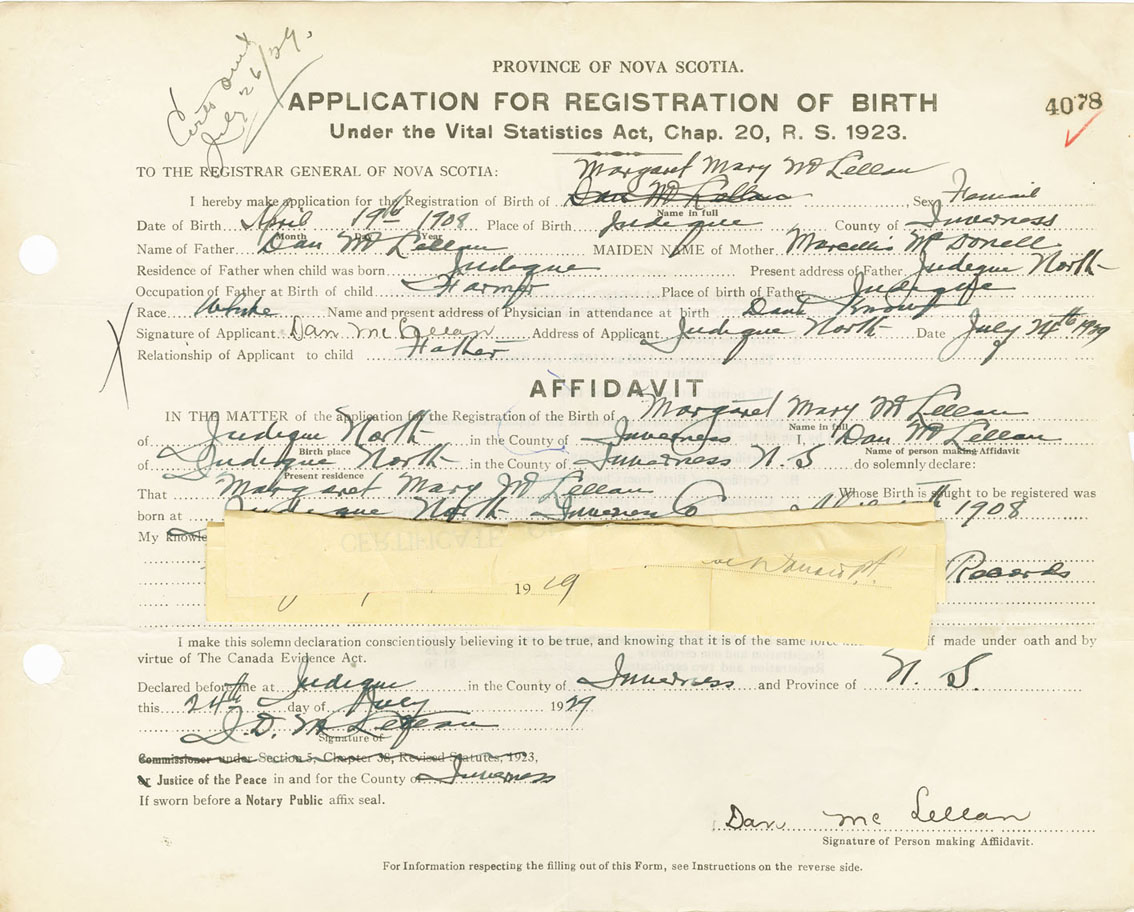 Certs out
July 26/29.
PROVINCE OF NOVA SCOTIA.
APPLICATION FOR REGISTRATION OF BIRTH
4078
Under the Vital Statistics Act, Chap. 20, R. S. 1923.
TO THE REGISTRAR GENERAL OF NOVA SCOTIA:
Margaret Mary Mc Lellan
I hereby make application for the Registration of Birth of Dan Mc Lellan Sex Femail
Name in full
Date of Birth April 19th 1908 Place of Birth Judique County of Inverness
Month Year
Name of Father Dan Mc Lellan MAIDEN NAME of Mother Marcellis McDonell
Residence of Father when child was born Judique Present address of Father Judique North
Occupation of Father at Birth of child Farmer Place of birth of Father Judique
Race White Name and present address of Physician in attendance at birth Dont Know
Signature of Applicant Dan Mc Lellan Address of Applicant Judique North Date July 24th 1929
Relationship of Applicant to child Father
AFFIDAVIT
IN THE MATTER of the application for the Registration of the Birth of Margaret Mary Mc Lellan
Name in full
of Judique North in the County of Inverness I, Dan Mc Lellan
Birth place Name of person making Affidavit
of Judique North in the County of Inverness N. S do solemnly declare:
Present residence
That Margaret Mary Mc Lellan Whose Birth is sought to be registered was
born at Judique North Inverness Co 1908
My knowle
Records
19 29
I make this solemn declaration conscientiously believing it to be true, and knowing that it is of the same force if made under oath and by
virtue of The Canada Evidence Act.
Declared before me at Judique in the County of Inverness and Province of N. S.
this 24th day of July 1929
J. D. Mc Lellan
Signature of
Commissioner under Section 5, Chapter 38, Revised Statutes, 1923,
or Justice of the Peace in and for the County of Inverness
If sworn before a Notary Public affix seal.
Dan Mc Lellan
Signature of Person making Affiidavit.
For Information respecting the filling out of this Form, see Instructions on the reverse side.